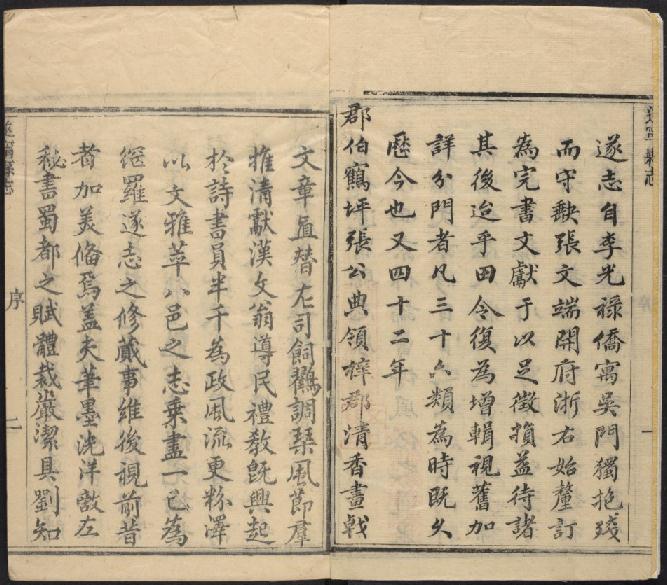 遂寧縣志
遂志自李光祿僑寓吳門獨抱殘
而守缺張文端開府浙右始釐訂
為完書文獻于以足徵損益待諸
其後迨乎田令復為增輯視舊加
詳分門者凡三十六類為時既久
歷今也又四十二年
郡伯鶴坪張公典領梓郡清香畫戟
文章直替左司飼鶴調琴風節羣
推清獻漢文翁導民禮教既興起
於詩書員半千為政風流更粉澤
以文雅萃八邑之志乘盡一己為
網羅遂志之修蕆事維後視前昔
者加美備焉蓋夫筆墨洸洋敵左
秘書蜀都之賦體裁嚴潔具劉知
遂寧縣志
序
二